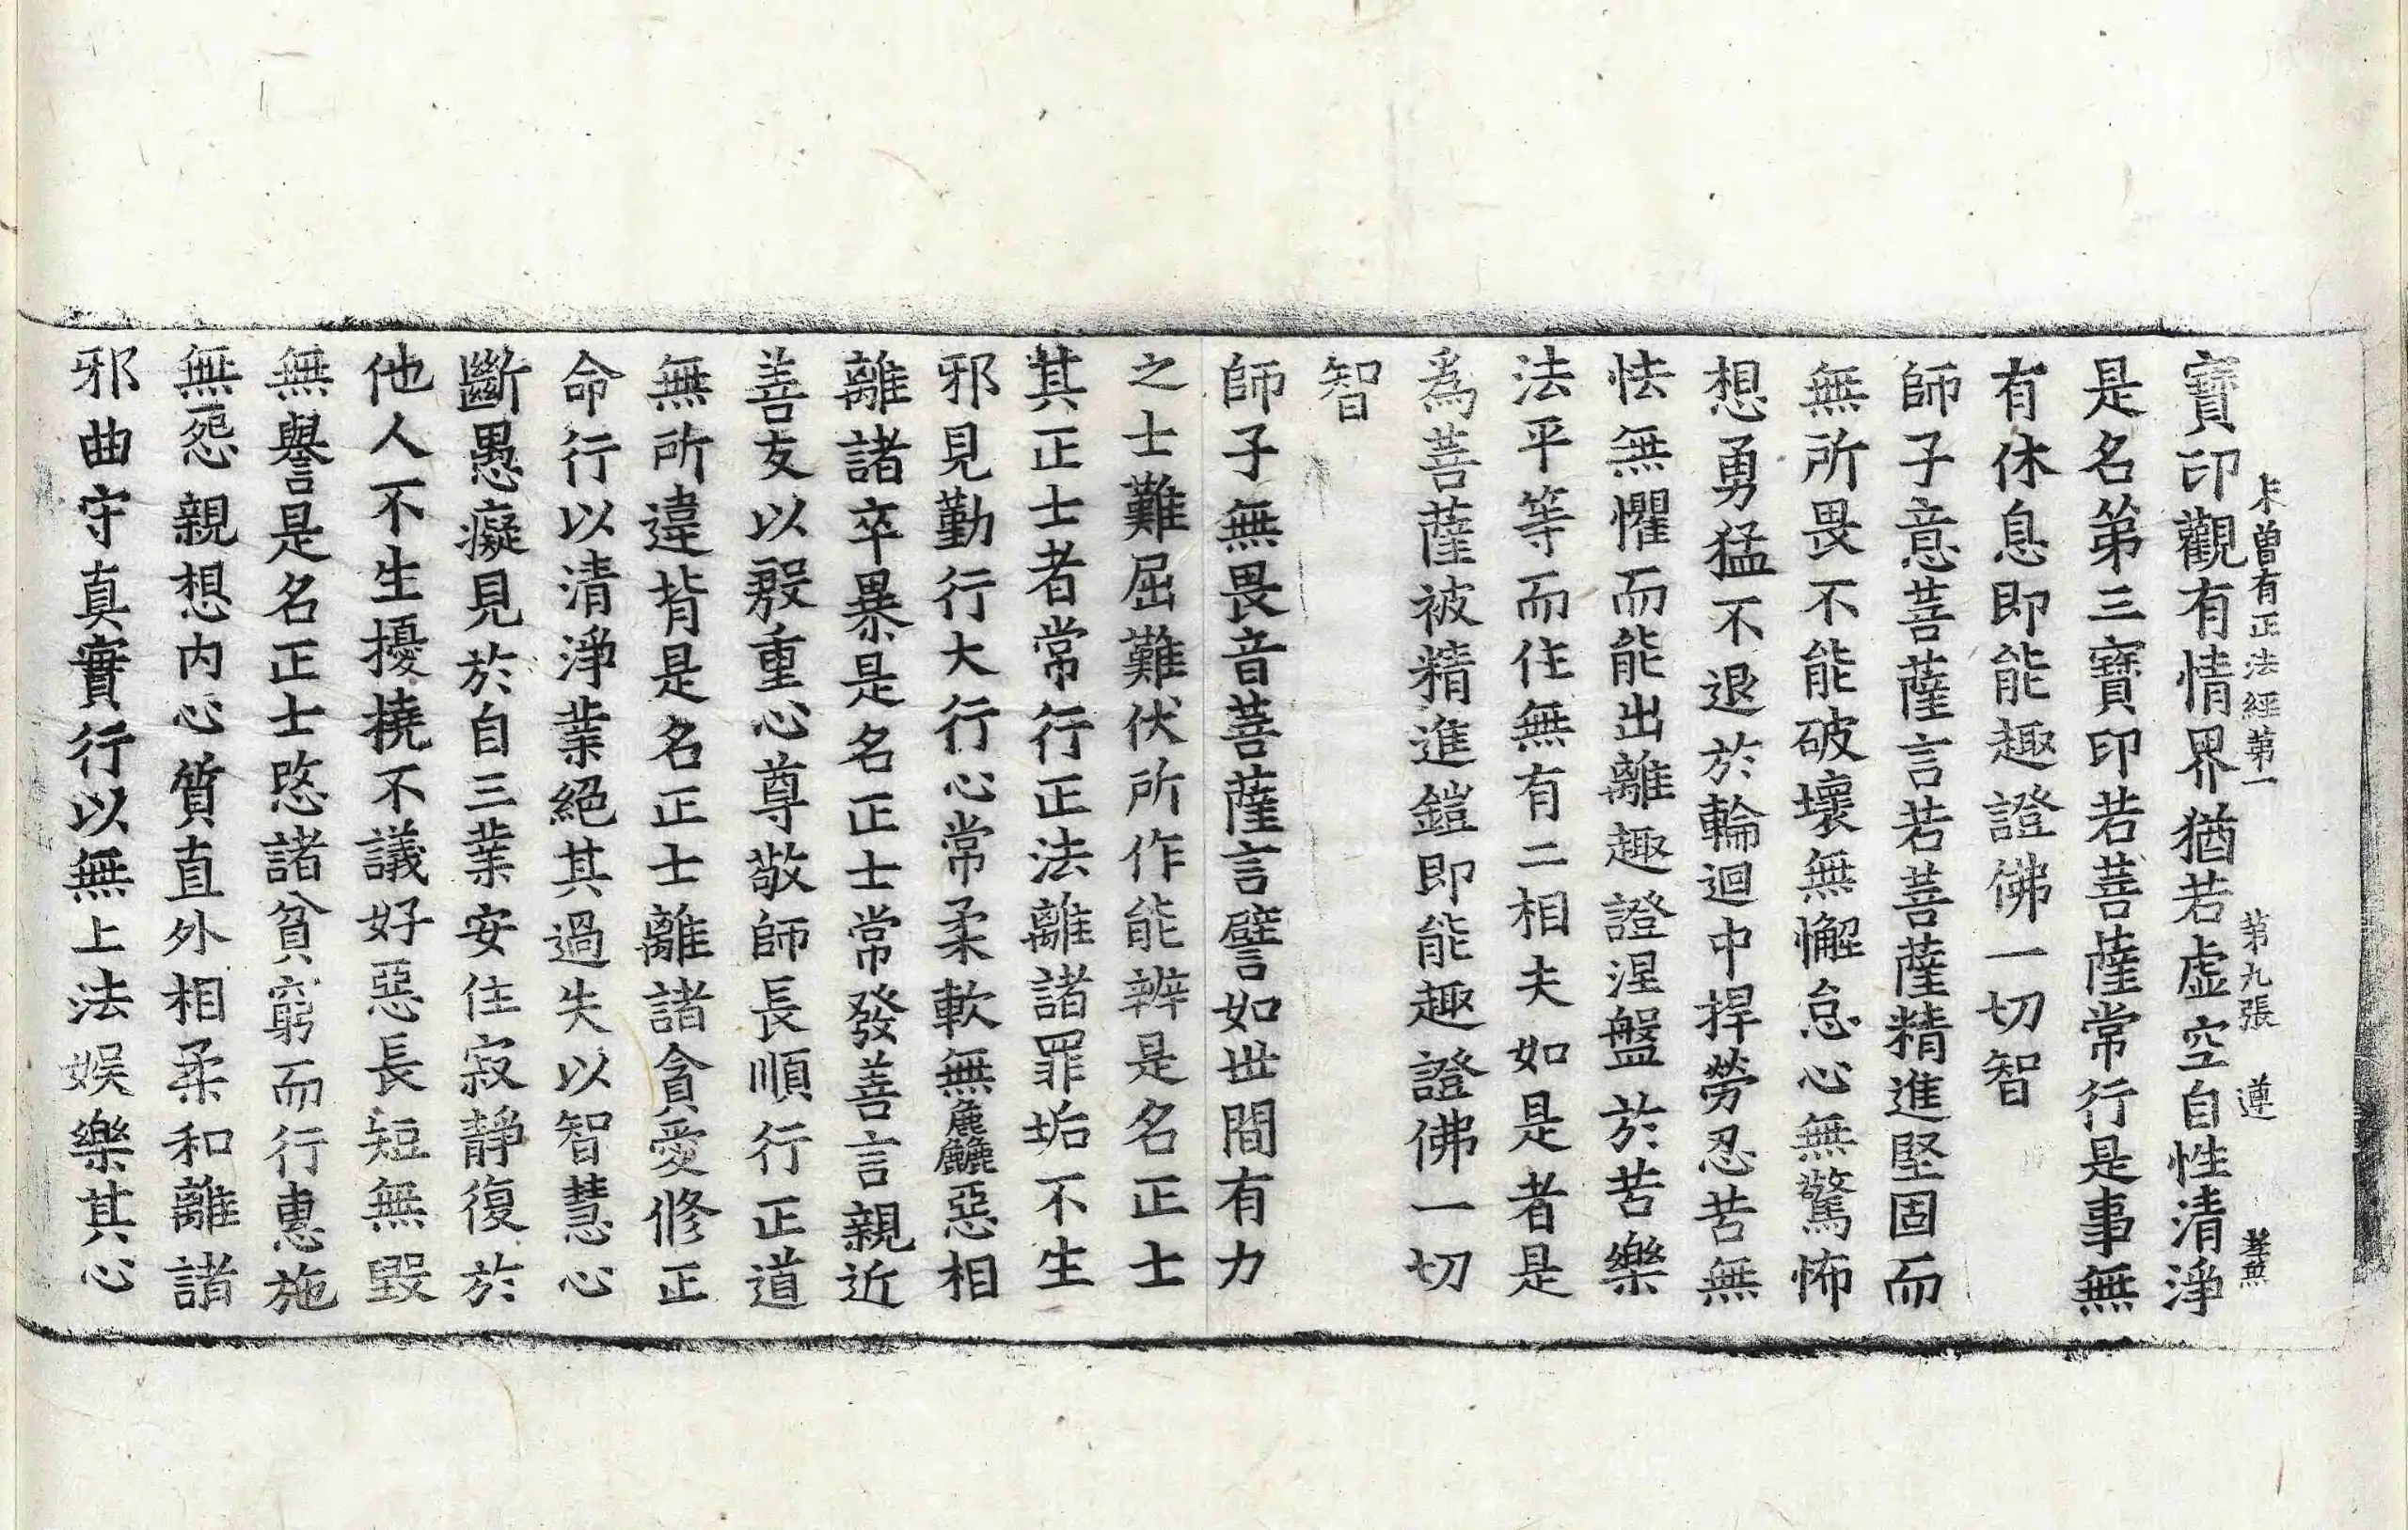 未曾有正法經第一 第九張 遵
寶印觀有情界猶若虛空自性清淨
是名第三寶印若菩薩常行是事無
有休息即能趣證佛一切智
師子意菩薩言若菩薩精進堅固而
無所畏不能破壞無懈怠心無驚怖
想勇猛不退於輪迴中捍勞忍苦無
怯無懼而能出離趣證涅盤於苦樂
法平等而住無有二相夫如是者是
為菩薩被精進鎧即能趣證佛一切
智
師子無畏音菩薩言譬如世間有力
之士難屈難伏所作能辨是名正士
其正士者常行正法離諸罪垢不生
邪見勤行大行心常柔軟無麁𪋻惡相
離諸卒暴是名正士常發善言親近
善友以殷重心尊敬師長順行正道
無所違背是名正士離諸貪愛修正
命行以清淨業絕其過失以智慧心
斷愚癡見於自三業安住寂靜復於
他人不生擾撓不議好惡長短無毀
無譽是名正士愍諸貧窮而行惠施
無怨親想內心質直外相柔和離諸
邪曲守真實行以無上法娛樂其心